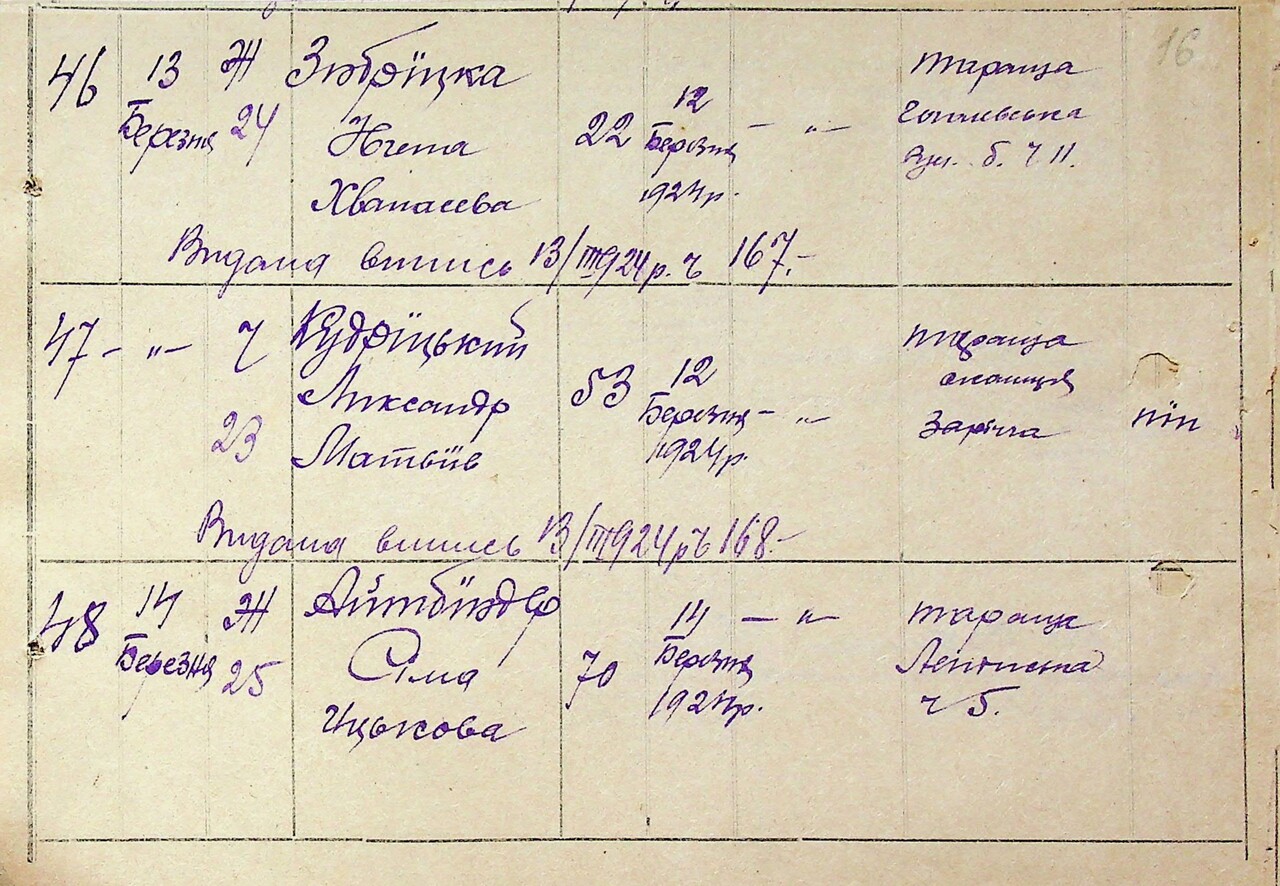 16
46 13 Березня Ж 24
Зубріцка
22
12 Березня 1924 р.
— „ —
Тараща
Хванасева
буд. б. ч 11.
Видана впись 13/III 924 р. ч 167.-
47 — „ — Ч 23
Кудріцький
Александр
Матвіїв
53
12 Березня 1924 р.
— „ —
Тараща
станція
піп
Видана впись 13/III 924 р ч 168-
48 14 Березня Ж 25
Айтбіндер
Сіма
Ицькова
70
14 Березня 1924 р.
— „ —
Тараща
Ленінська
ч 5.